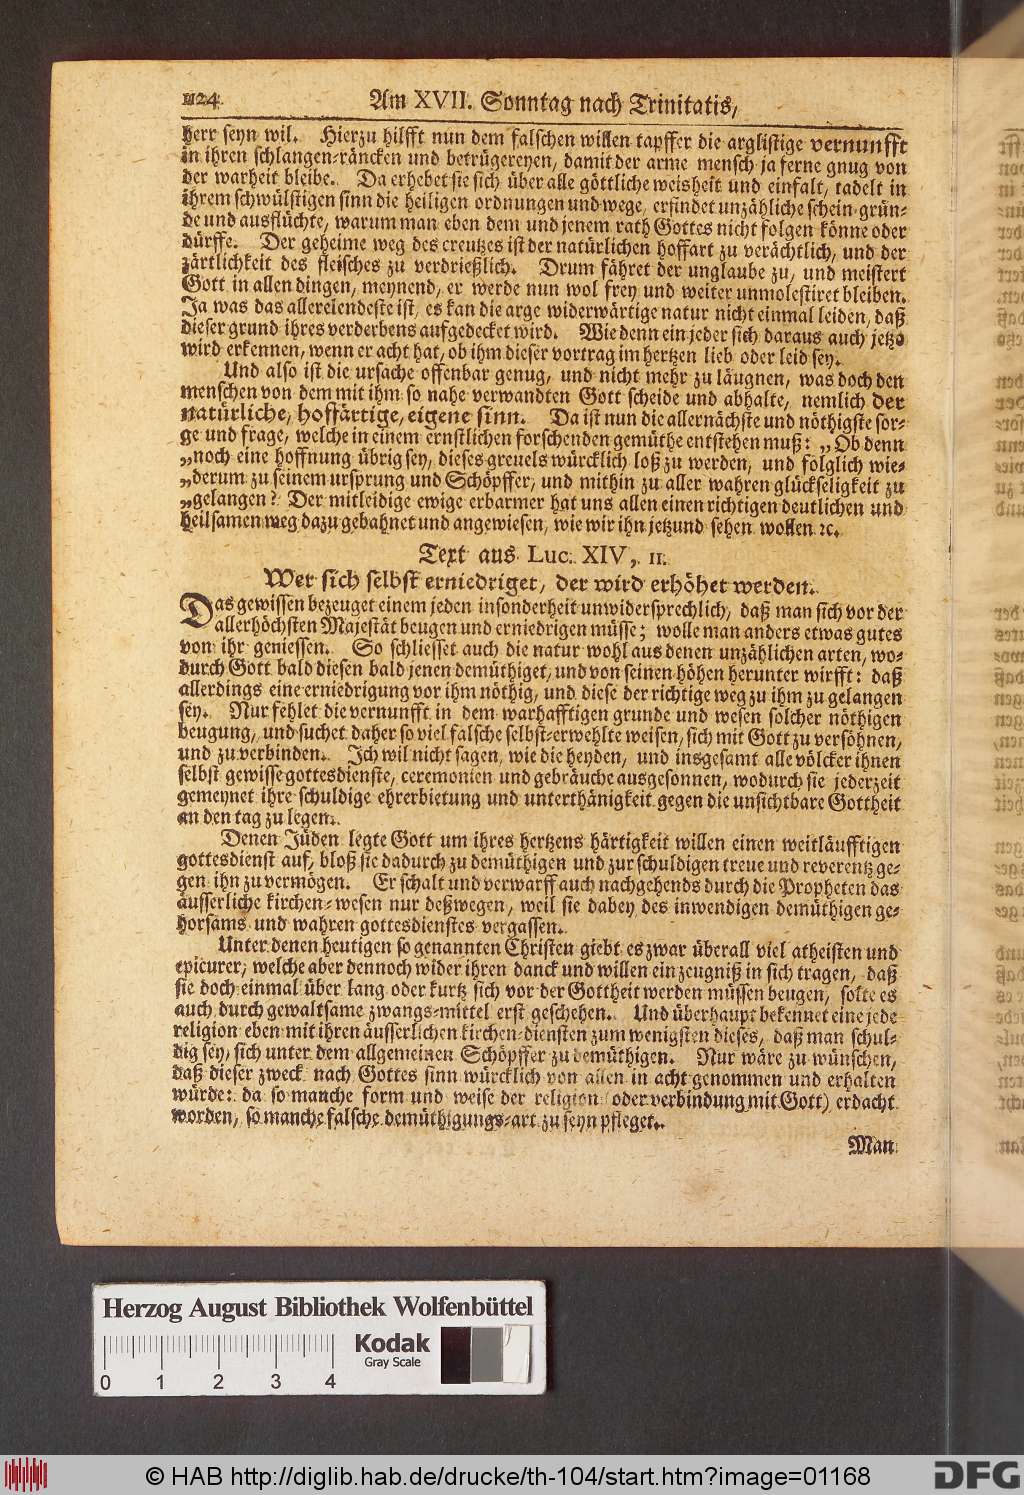 1124 Am XVII. Sonntag nach Trinitatis,
herr seyn wil. Hierzu hilfft nun dem falschen willen tapffer die arglistige vernunfft
in ihren schlangen-räncken und betrügereyen, damit der arme mensch ja ferne gnug von
der warheit bleibe. Da erhebet sie sich über alle göttliche weisheit und einfalt, tadelt in
ihrem schwülstigen sinn die heiligen ordnungen und wege, erfindet unzähliche schein-grün-
de und ausflüchte, warum man eben dem und jenem rath Gottes nicht folgen könne oder
dürffe. Der geheime weg des creutzes ist der natürlichen hoffart zu verächtlich, und der
zärtlichkeit des fleisches zu verdrießlich. Drum fähret der unglaube zu, und meistert
Gott in allen dingen, meynend, er werde nun wol frey und weiter unmolestiret bleiben.
Ja was das allereiendeste ist, es kan die arge widerwärtige natur nicht einmal leiden, daß
dieser grund ihres verderbens aufgedecket wird. Wie denn ein jeder sich daraus auch jetzo
wird erkennen, wenn er acht hat, ob ihm dieser vortrag im hertzen lieb oder leid sey.
Und also ist die ursache offenbar genug, und nicht mehr zu läugnen, was doch den
menschen von dem mit ihm so nahe verwandten Gott scheide und abhalte, nemlich der
natürliche, hoffärtige, eigene sinn. Da ist nun die allernächste und nöthigste sor-
ge und frage, welche in einem ernstlichen forschenden gemüthe entstehen muß: „Ob denn
„noch eine hoffnung übrig sey, dieses greuels würcklich loß zu werden, und folglich wie-
„derum zu seinem ursprung und Schöpffer, und mithin zu aller wahren glückseligkeit zu
„gelangen? Der mitleidige ewige erbarmer hat uns allen einen richtigen deutlichen und
heilsamen weg dazu gebahnet und angewiesen, wie wir ihn jetzund sehen wollen ꝛc.
Text aus Luc. XIV, 11.
Wer sich selbst erniedriget, der wird erhöhet werden.
Das gewissen bezeuget einem jeden insonderheit unwidersprechlich, daß man sich vor der
allerhöchsten Majestät beugen und erniedrigen müsse; wolle man anders etwas gutes
von ihr geniessen. So schliesset auch die natur wohl aus denen unzählichen arten, wo-
durch Gott bald diesen bald jenen demüthiget, und von seinen höhen herunter wirfft: daß
allerdings eine erniedrigung vor ihm nöthig, und diese der richtige weg zu ihm zu gelangen
sey. Nur fehlet die vernunfft in dem warhafftigen grunde und wesen solcher nöthigen
beugung, und suchet daher so viel falsche selbst-erwehlte weisen, sich mit Gott zu versöhnen,
und zu verbinden. Ich wil nicht sagen, wie die heyden, und insgesamt alle völcker ihnen
selbst gewisse gottesdienste, ceremonien und gebräuche ausgesonnen, wodurch sie jederzeit
gemeynet ihre schuldige ehrerbietung und unterthänigkeit gegen die unsichtbare Gottheit
an den tag zu legen.
Denen Jüden legte Gott um ihres hertzens härtigkeit willen einen weitläufftigen
gottesdienst auf, bloß sie dadurch zu demüthigen und zur schuldigen treue und reverentz ge-
gen ihn zu vermögen. Er schalt und verwarff auch nachgehends durch die Propheten das
äusserliche kirchen-wesen nur deßwegen, weil sie dabey des inwendigen demüthigen ge-
horsams und wahren gottesdienstes vergassen.
Unter denen heutigen so genannten Christen giebt es zwar überall viel atheisten und
epicurer, welche aber dennoch wider ihren danck und willen ein zeugniß in sich tragen, daß
sie doch einmal über lang oder kurtz sich vor der Gottheit werden müssen beugen, solte es
auch durch gewaltsame zwangs-mittel erst geschehen. Und überhaupt bekennet eine jede
religion eben mit ihren äusserlichen kirchen-diensten zum wenigsten dieses, daß man schul-
dig sey, sich unter dem allgemeinen Schöpffer zu demüthigen. Nur wäre zu wünschen,
daß dieser zweck nach Gottes sinn würcklich von allen in acht genommen und erhalten
würde: da so manche form und weise der religion (oder verbindung mit Gott) erdacht
worden, so manche falsche demüthigungs-art zu seyn pfleget.
Man
Herzog August Bibliothek Wolfenbüttel
Kodak
Gray Scale
0 1 2 3 4
© HAB http://diglib.hab.de/drucke/th-104/start.htm?image=01168
DFG